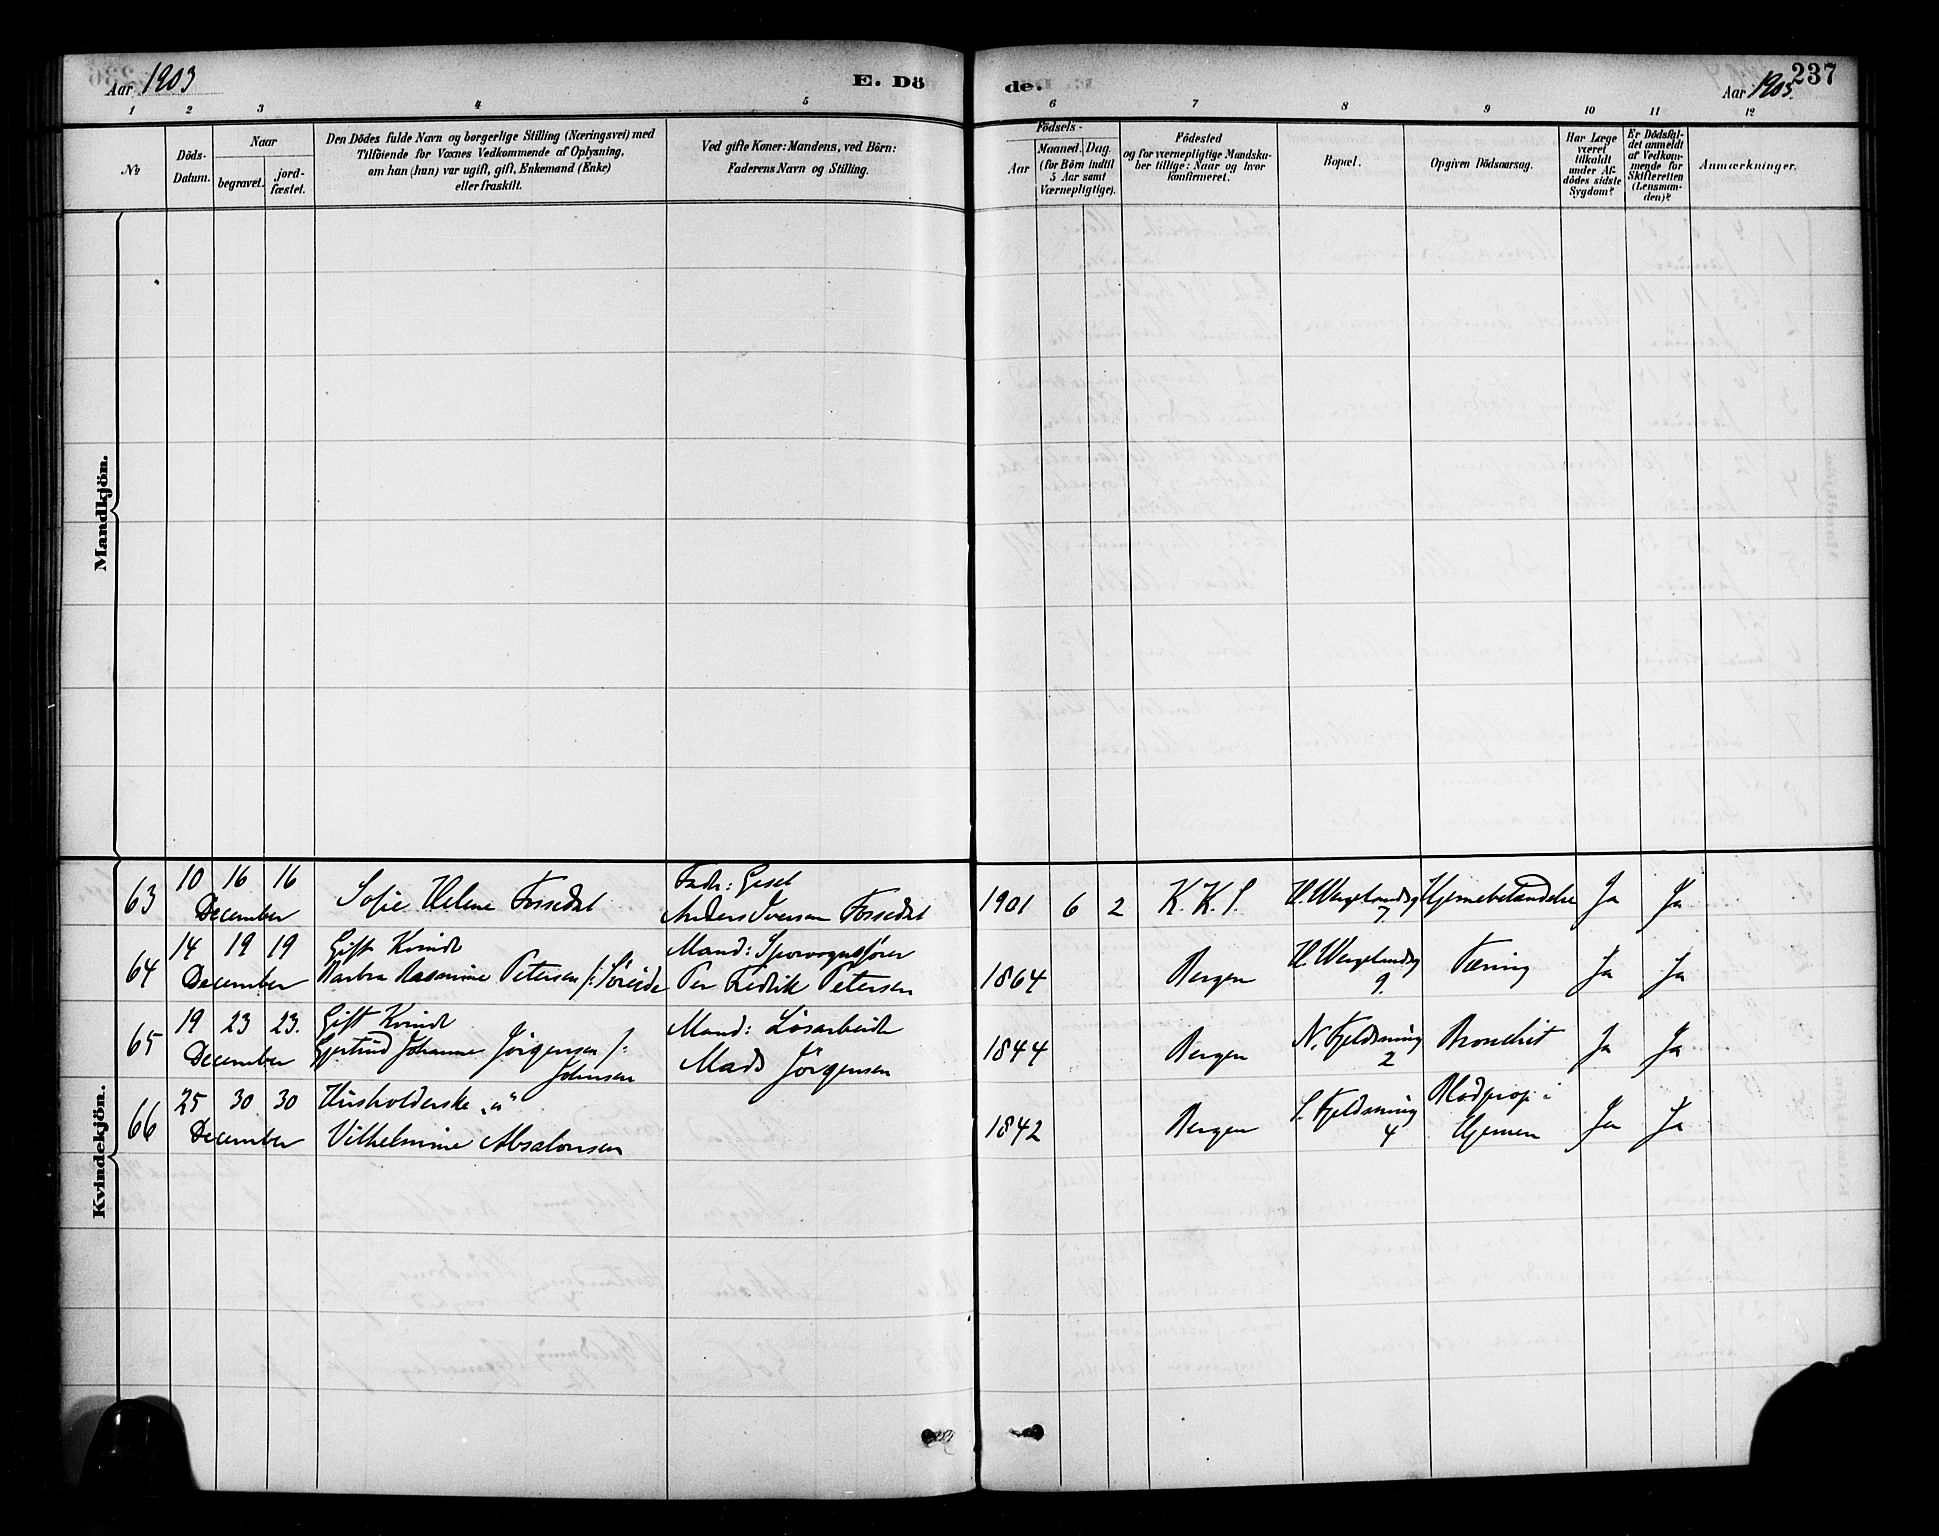 Aar 1903 E. Dö
de. Aar 1903. 237
1 2 3 4 5 6 7 8 9 10 11 12
No
Döds-
Datum.
Naar
begravet.
jord-
fæstet.
Den Dödes fulde Navn og borgerlige Stilling (Næringsvei) med
Tilföiende for Voxnes Vedkommende af Oplysning,
om han (hun) var ugift, gift, Enkemand (Enke)
eller fraskilt.
Ved gifte Koner: Mandens, ved Börn:
Faderens Navn og Stilling.
Födsels-
Aar
Maaned. Dag.
(for Börn indtil
5 Aar samt
Værnepligtige).
Födested
og for værnepligtige Mandska-
ber tillige: Naar og hvor
konfirmeret.
Bopæl.
Opgiven Dödsaarsag.
Har Læge
været
tilkaldt
under Af-
dödes sidste
Sygdom?
Er Dödsfal-
det anmeldt
af Vedkom-
mende for
Skifteretten
(Lensman-
den)?
Anmærkninger.
Mandkjön.
Kvindekjön.
63 10 16 16 December Sofie Helene Fossedal
Anders Iversen Fossedal
1901 6 2 K. K. S. H. Wergelandsg 7. Hjernebetændelse Ja Ja
64 14 19 19 December Gift Kvinde
Barbra Rasmine Petersen f: Søreide
Mand: Sporvognsfører
Per Fredrik Petersen
1864 Bergen H. Wergelandsg 9. Tæring Ja Ja
65 19 23 23. December Gift Kvinde
Gjertrud Johanne Jörgensen f:
Johnsen
Mand: Løsarbeide
Mads Jörgensen
1844 Bergen N. Fjeldsmug 2 Bronchit Ja Ja
66 25 30 30 December Husholderske „u“
Vilhelmine Absalonsen
1842 Bergen S. Fjeldsmug 4 Blodprop i
Hjernen Ja Ja